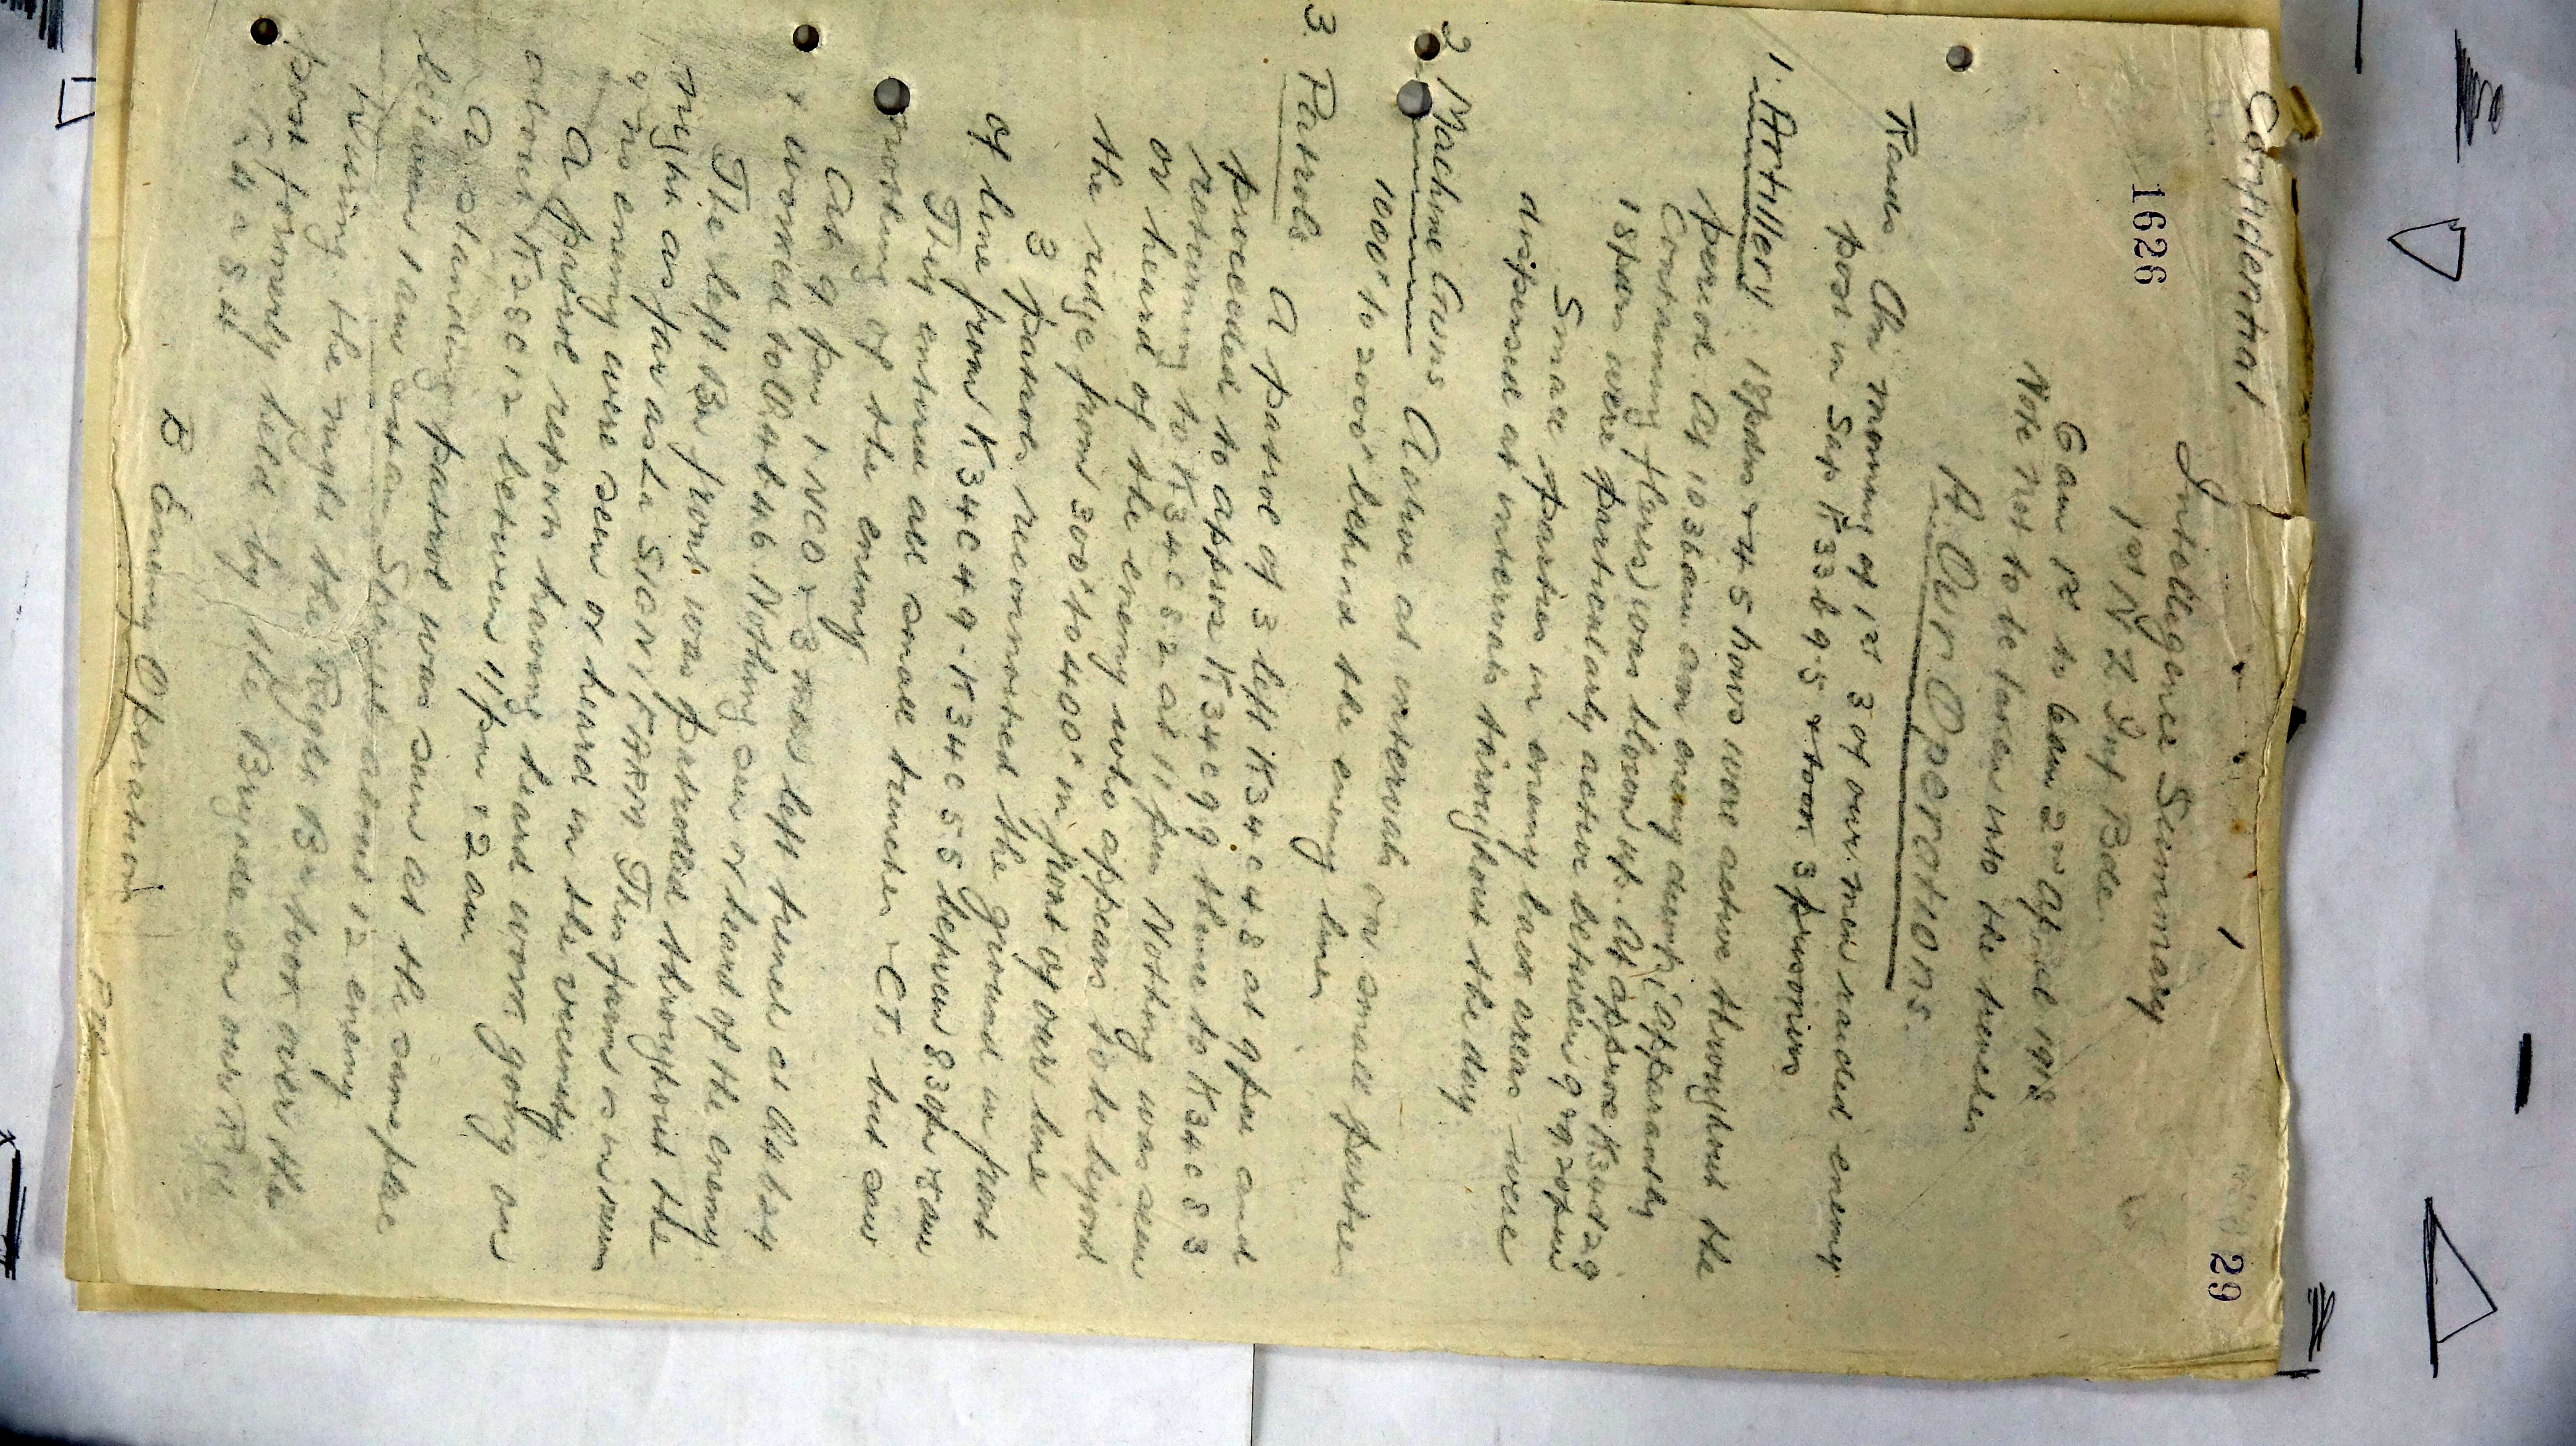 Confidential
1626
29
1
Intelligence Summary
1st N Z Inf Bde.
6 am 1st to 6 am 2nd April 1918
Note Not to be taken into the trenches
A. Our Operations.
Raids On morning of 1st 3 of our men raided enemy
post in Sap K33b 9.5 & took 3 prisoners
1. Artillery 18pdrs & 4 5 hows were active throughout the
period. At 10 36am our enemy dump (apparently
containing flares) was blown up. At approx K34d 29
18pdrs were particularly active between 9 & 9.20pm
Small parties in enemy back areas were
dispersed at intervals throughout the day
2 Machine Guns Active at intervals on small parties
1000x to 2000x behind the enemy lines
3. Patrols A patrol of 3 left K34c 4.8 at 9pm and
proceeded to approx K34c 99 thence to K34c 83
returning to K34c 52 at 11 pm Nothing was seen
or heard of the enemy who appears to be beyond
the ridge from 300x to 400x in front of our line
3 patrols reconnoitred the ground in front
of line from K34c 49 - K34c 55 between 830pm & 5am
They entered all small trenches & CT but saw
nothing of the enemy
At 9 pm 1 NCO & 3 men left trench at Q4b 24
& worked to Q4b 46. Nothing seen or heard of the enemy
The left Bn front was patrolled throughout the
night as far as La SIGNY FARM This farm is in ruins
& no enemy were seen or heard in the vicinity
A patrol report having heard work going on
about K28c 12 between 11pm & 2 am
A standing patrol was seen at the same place
between 1 am & 4 am Strength about 12 enemy
During the night the Right Bn took over the
post formerly held by the Brigade on our right
Q4a 8.4
B Enemy Operations
PTO